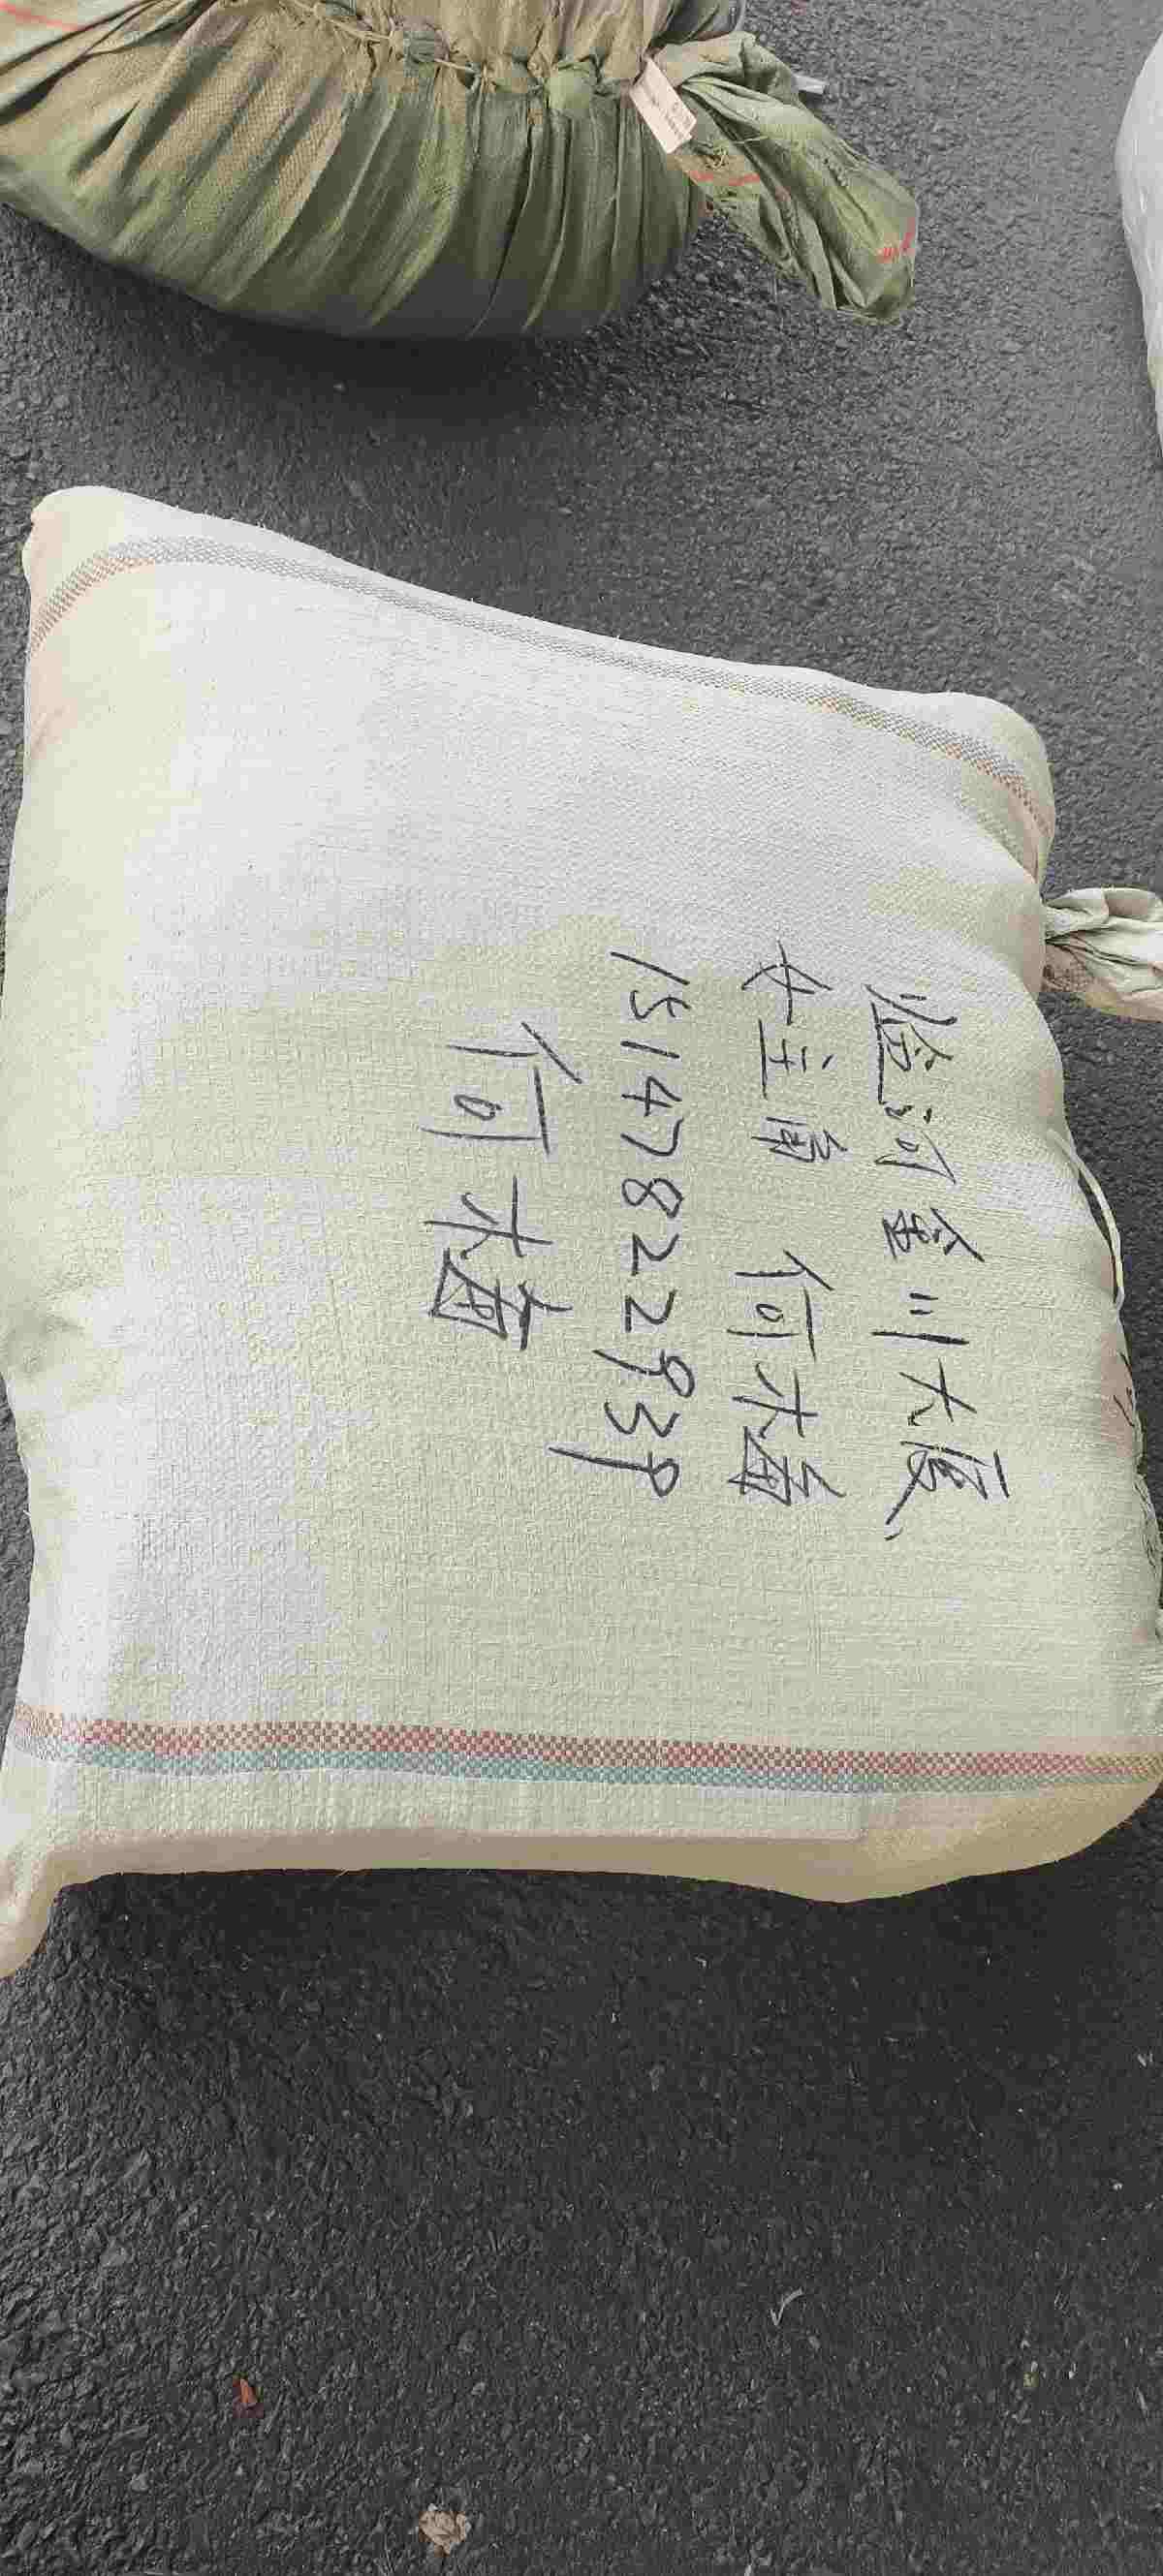 临河金川大厦
女主角 何木楠
15147822939
何木楠